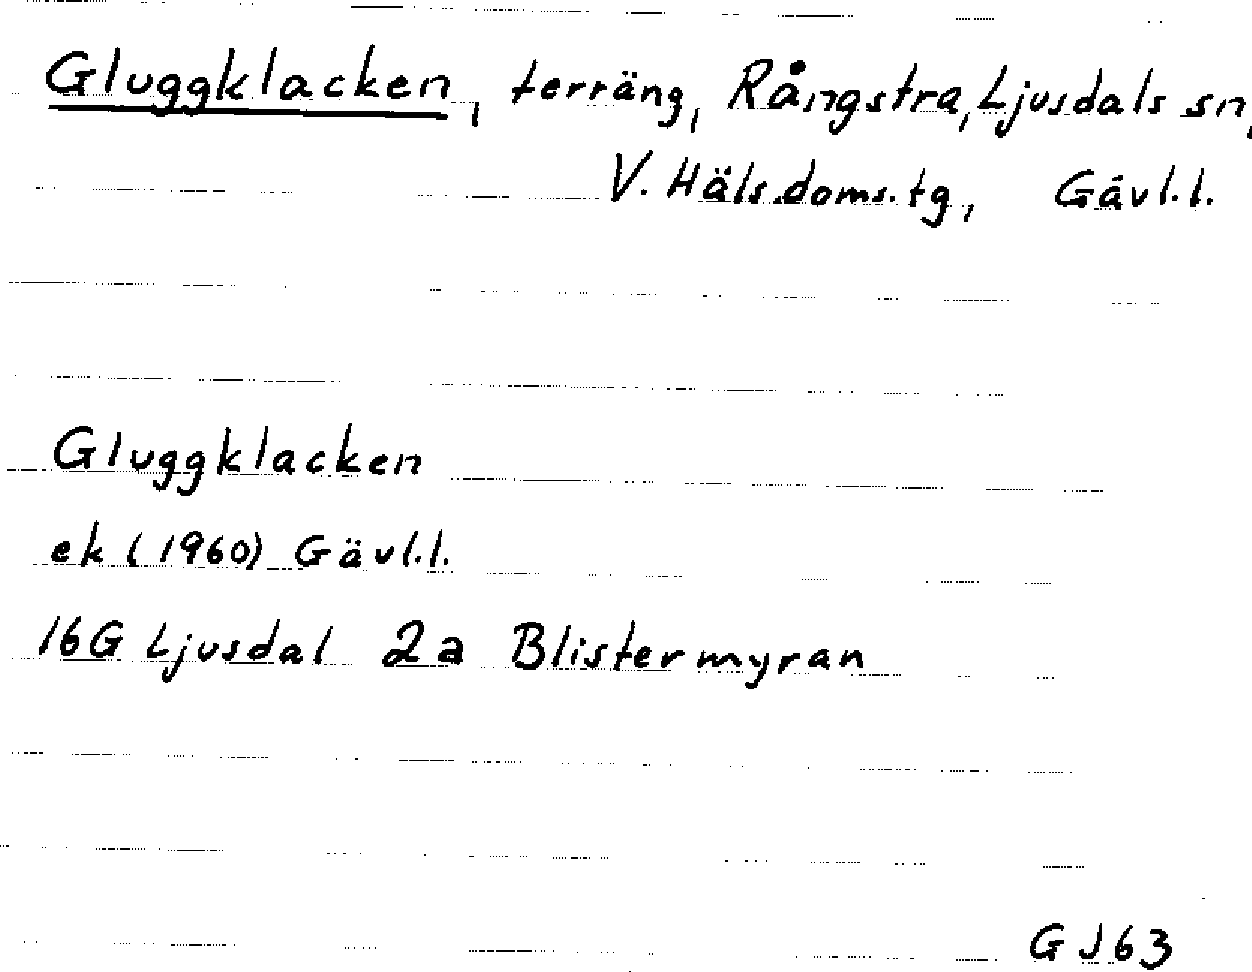 Gluggklacken, terräng, Rångstra, Ljusdals sn,
V. Häls.doms.tg, Gävl.l.
Gluggklacken
ek (1960) Gävl.l.
16G Ljusdal 2a Blistermyran
GJ63